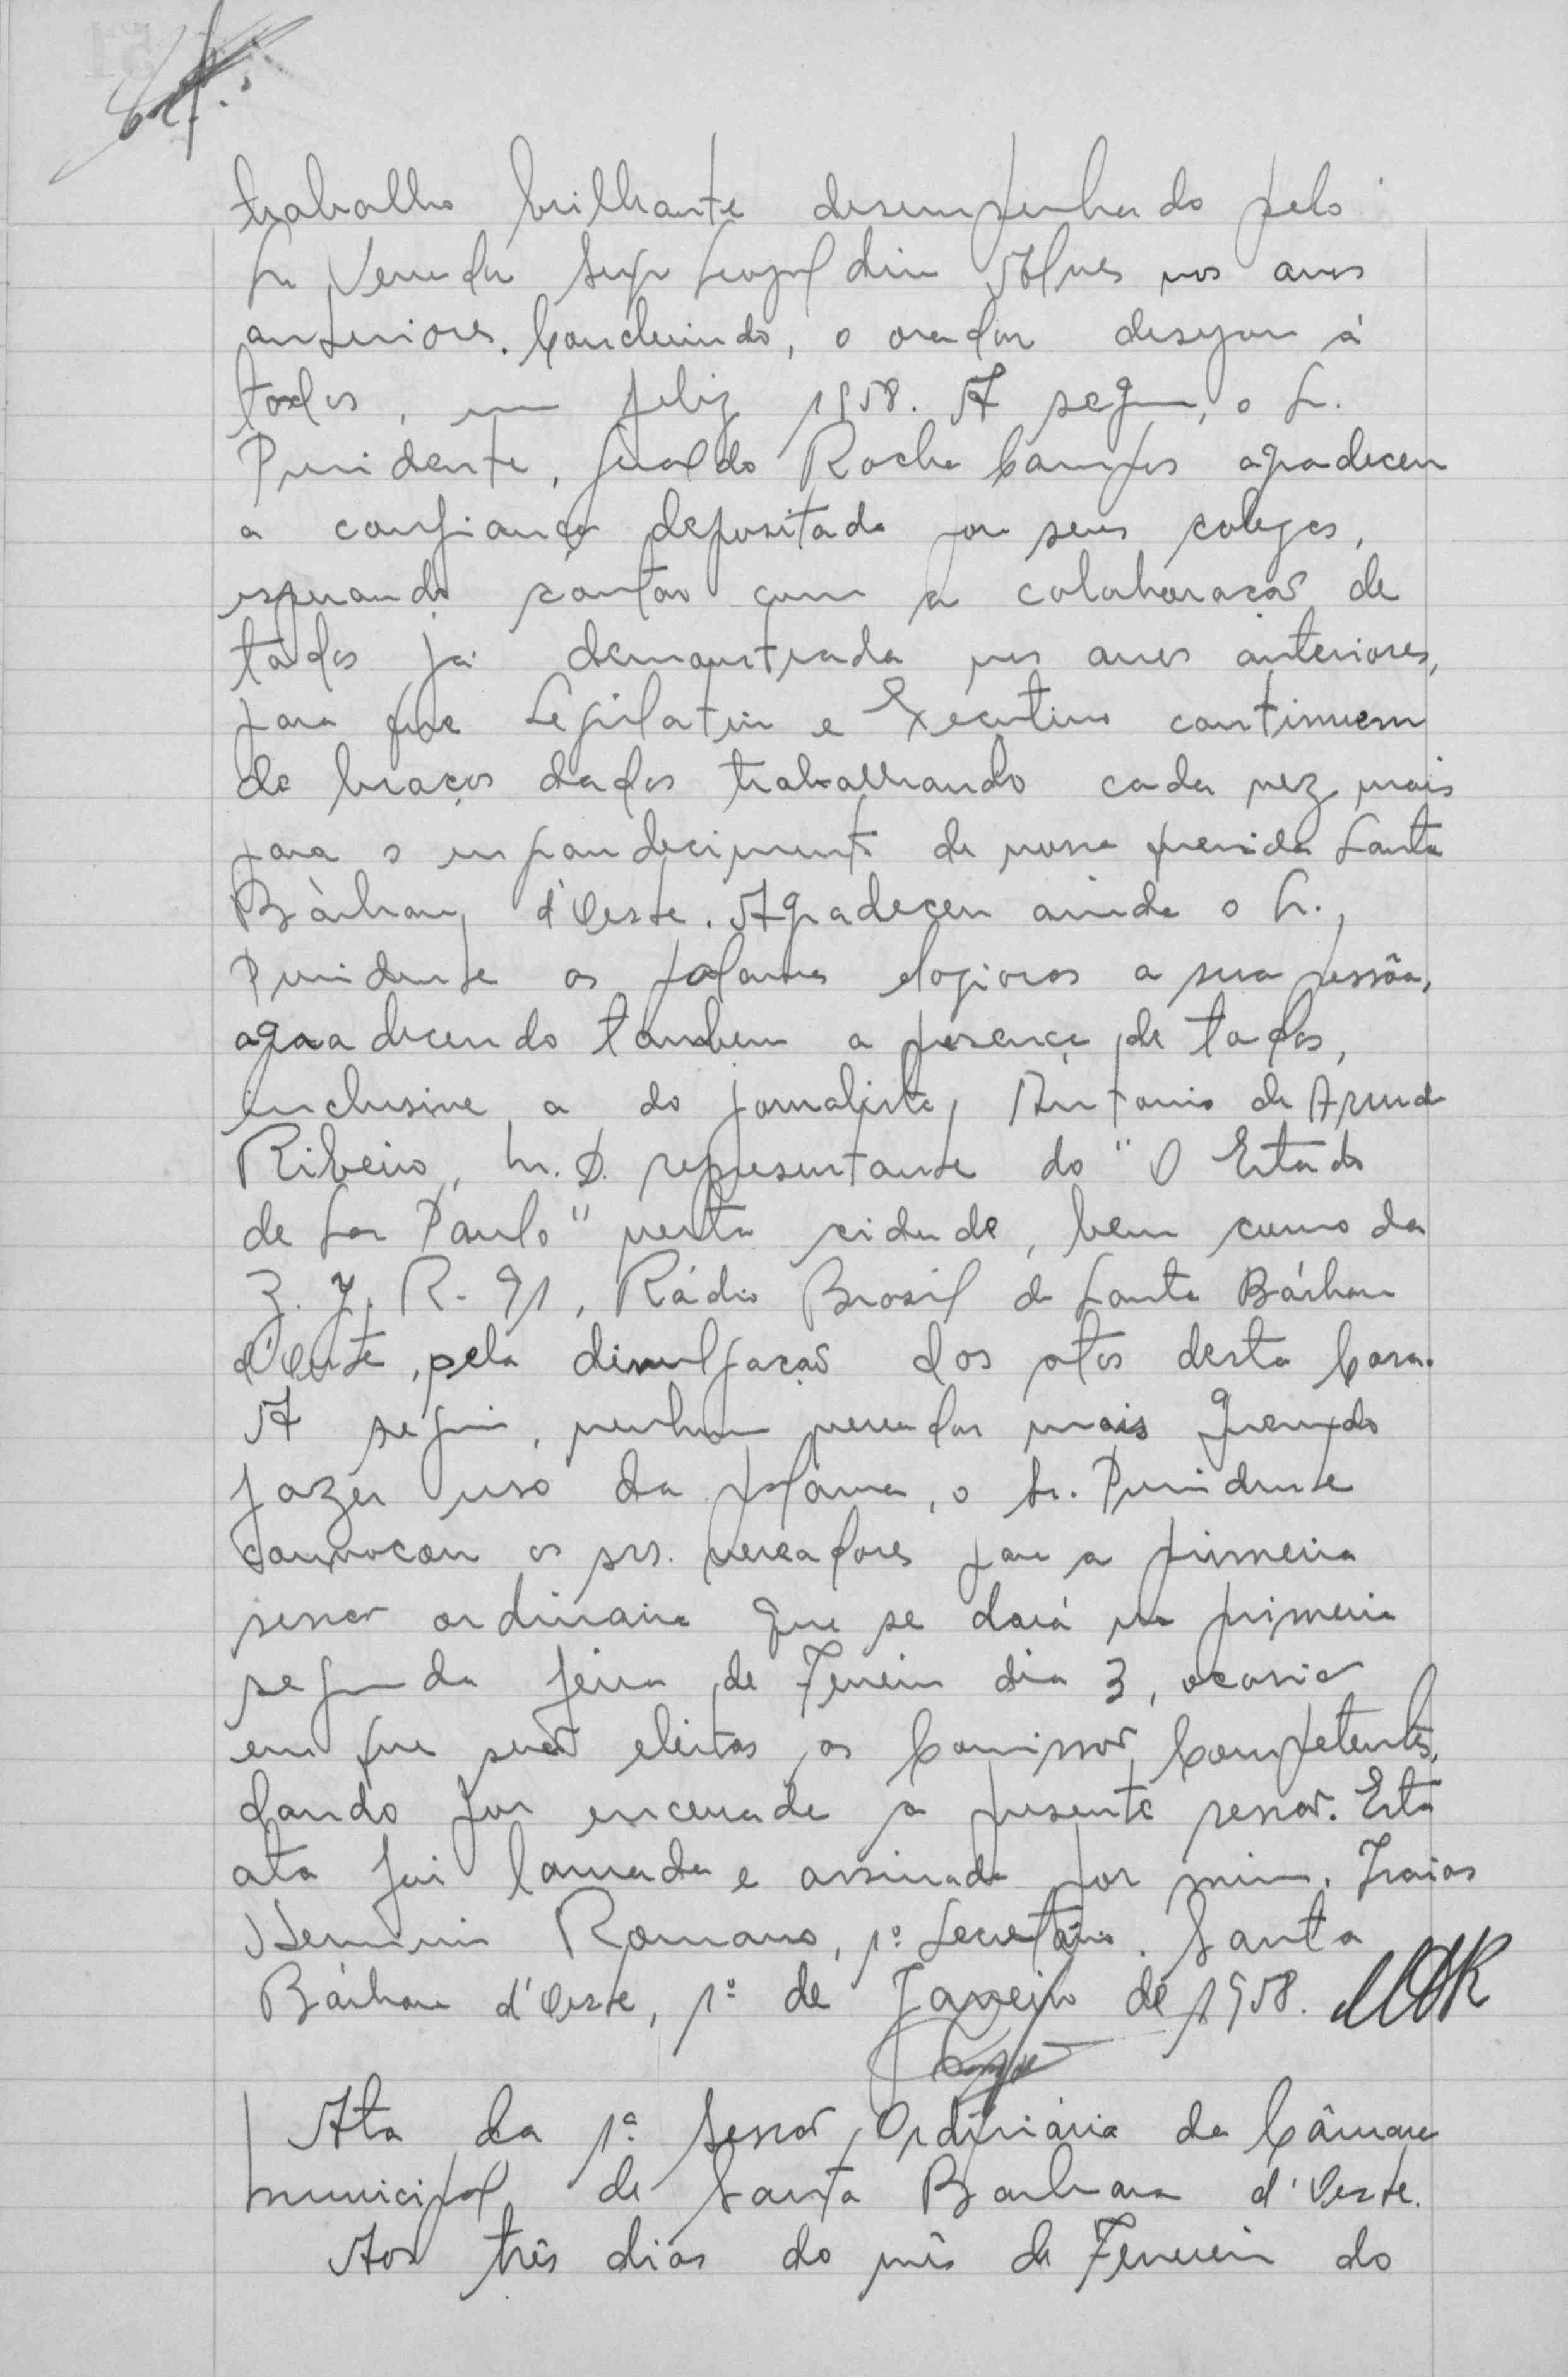 trabalho brilhante desempenhado pelo
Sr Vereador Leopoldino Alves nos anos
anteriores. Concluindo, o orador desejou á
todos, um feliz 1958. A seguir, o Sr.
Presidente, Geraldo Rocha Campos agradeceu
a confiança depositada por seus colegas,
esperando contar com a colaboração de
todos já demonstrada nos anos anteriores,
para que Legislativo e Executivo continuem
de braços dados trabalhando cada vez mais
para o engrandecimento de nossa querida Santa
Bárbara d'Oeste. Agradeceu ainda o Sr.
Presidente as palavras elogiosas a sua pessôa,
agradecendo tambem a presença de todos,
inclusive a do jornalista, Antonio de Arruda
Ribeiro, M.D. representante do "O Estado
de São Paulo" nesta cidade, bem como da
Z.Y.R-91, Rádio Brasil de Santa Bárbara
d'Oeste, pela divulgação dos atos desta Casa.
A seguir, nenhum vereador mais querendo
fazer uso da palavra, o Sr. Presidente
convocou os srs. vereadores para a primeira
sessão ordinaria que se dará na primeira
segunda feira de Fevereiro dia 3, ocasião
em que serão eleitas as Comissões Competentes,
dando por encerrada a presente sessão. Esta
ata foi lavrada e assinada por mim. Isaias
Herminio Romano, 1º Secretário. Santa
Bárbara d'Oeste, 1º de Janeiro de 1958.
Ata da 1ª Sessão Ordinária da Câmara
Municipal de Santa Barbara d'Oeste.
Aos três dias do mês de Fevereiro do